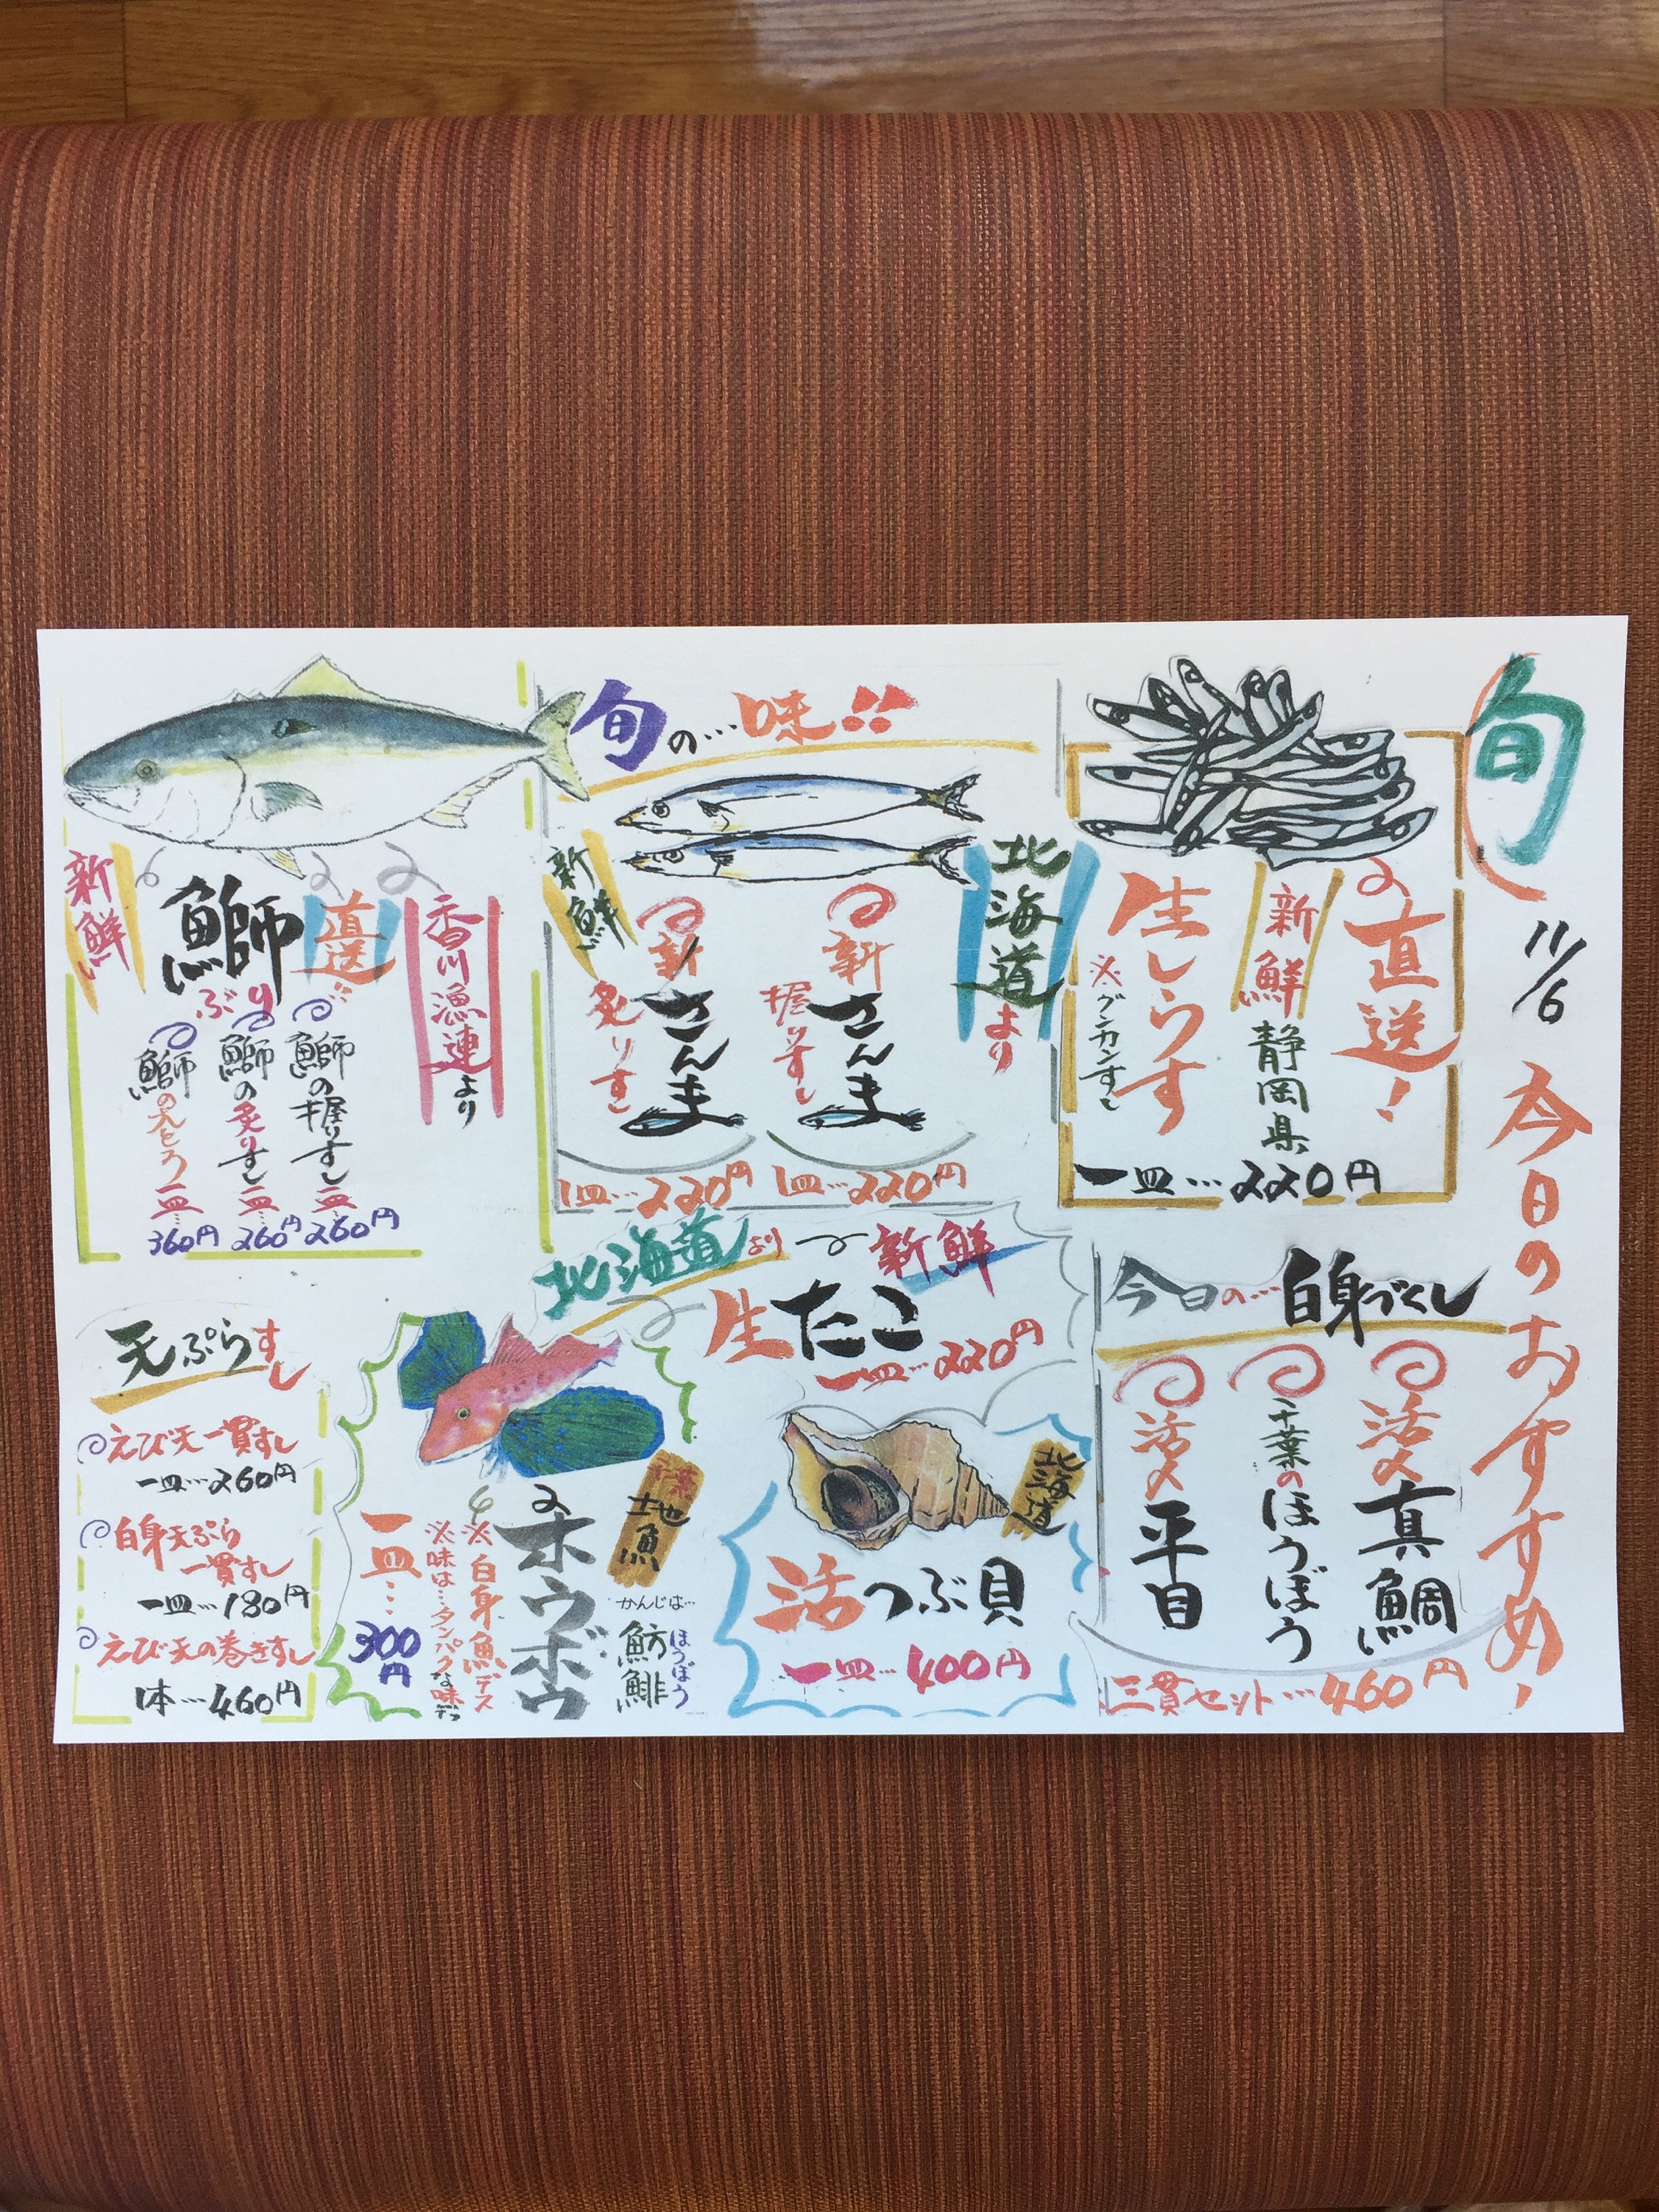 旬
11/6
今日のおすすめ!
直送!
新鮮
静岡県
生しらす
※グンカンすし
一皿…220円
旬の…味!!
北海道より
新鮮
新さんま
握りすし
1皿…220円
新さんま
炙りすし
1皿…220円
香川漁連より
直送!!
鰤
ぶり
新鮮
鰤の握りすし
一皿…260円
鰤の炙りすし
一皿…260円
鰤の大とろ
一皿…360円
今日の…白身づくし
活〆真鯛
千葉のほうぼう
活〆平目
三貫セット…460円
北海道より
新鮮
生たこ
一皿…220円
北海道
活つぶ貝
一皿…400円
千葉
地魚
ホウボウ
かんじは…
ほうぼう
魴鯡
※白身魚デス
※味は…タンパクな味デス
一皿…
300円
天ぷらすし
えび天一貫すし
一皿…260円
白身天ぷら
一貫すし
一皿…180円
えび天の巻きすし
1本…460円